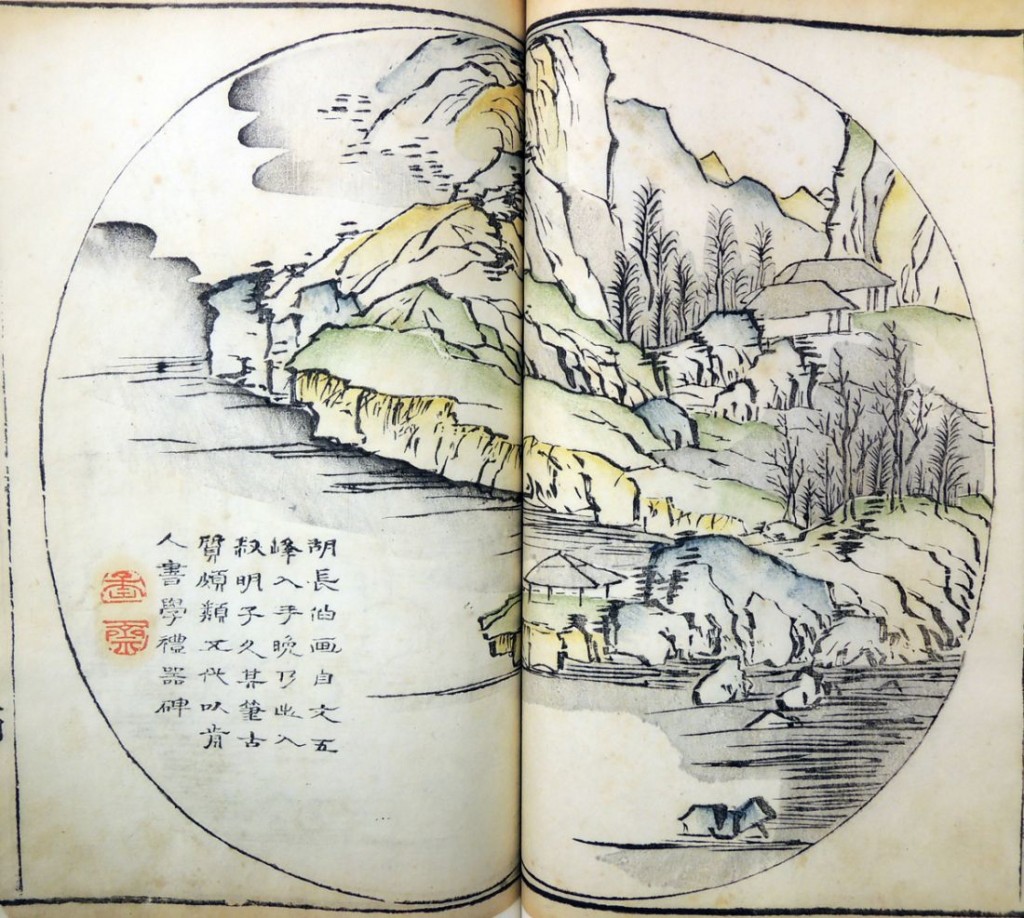 胡長伯画自文五
峰入手晚乃出入
叔明子久其筆古
質頗類五代以歬
人書學禮器碑